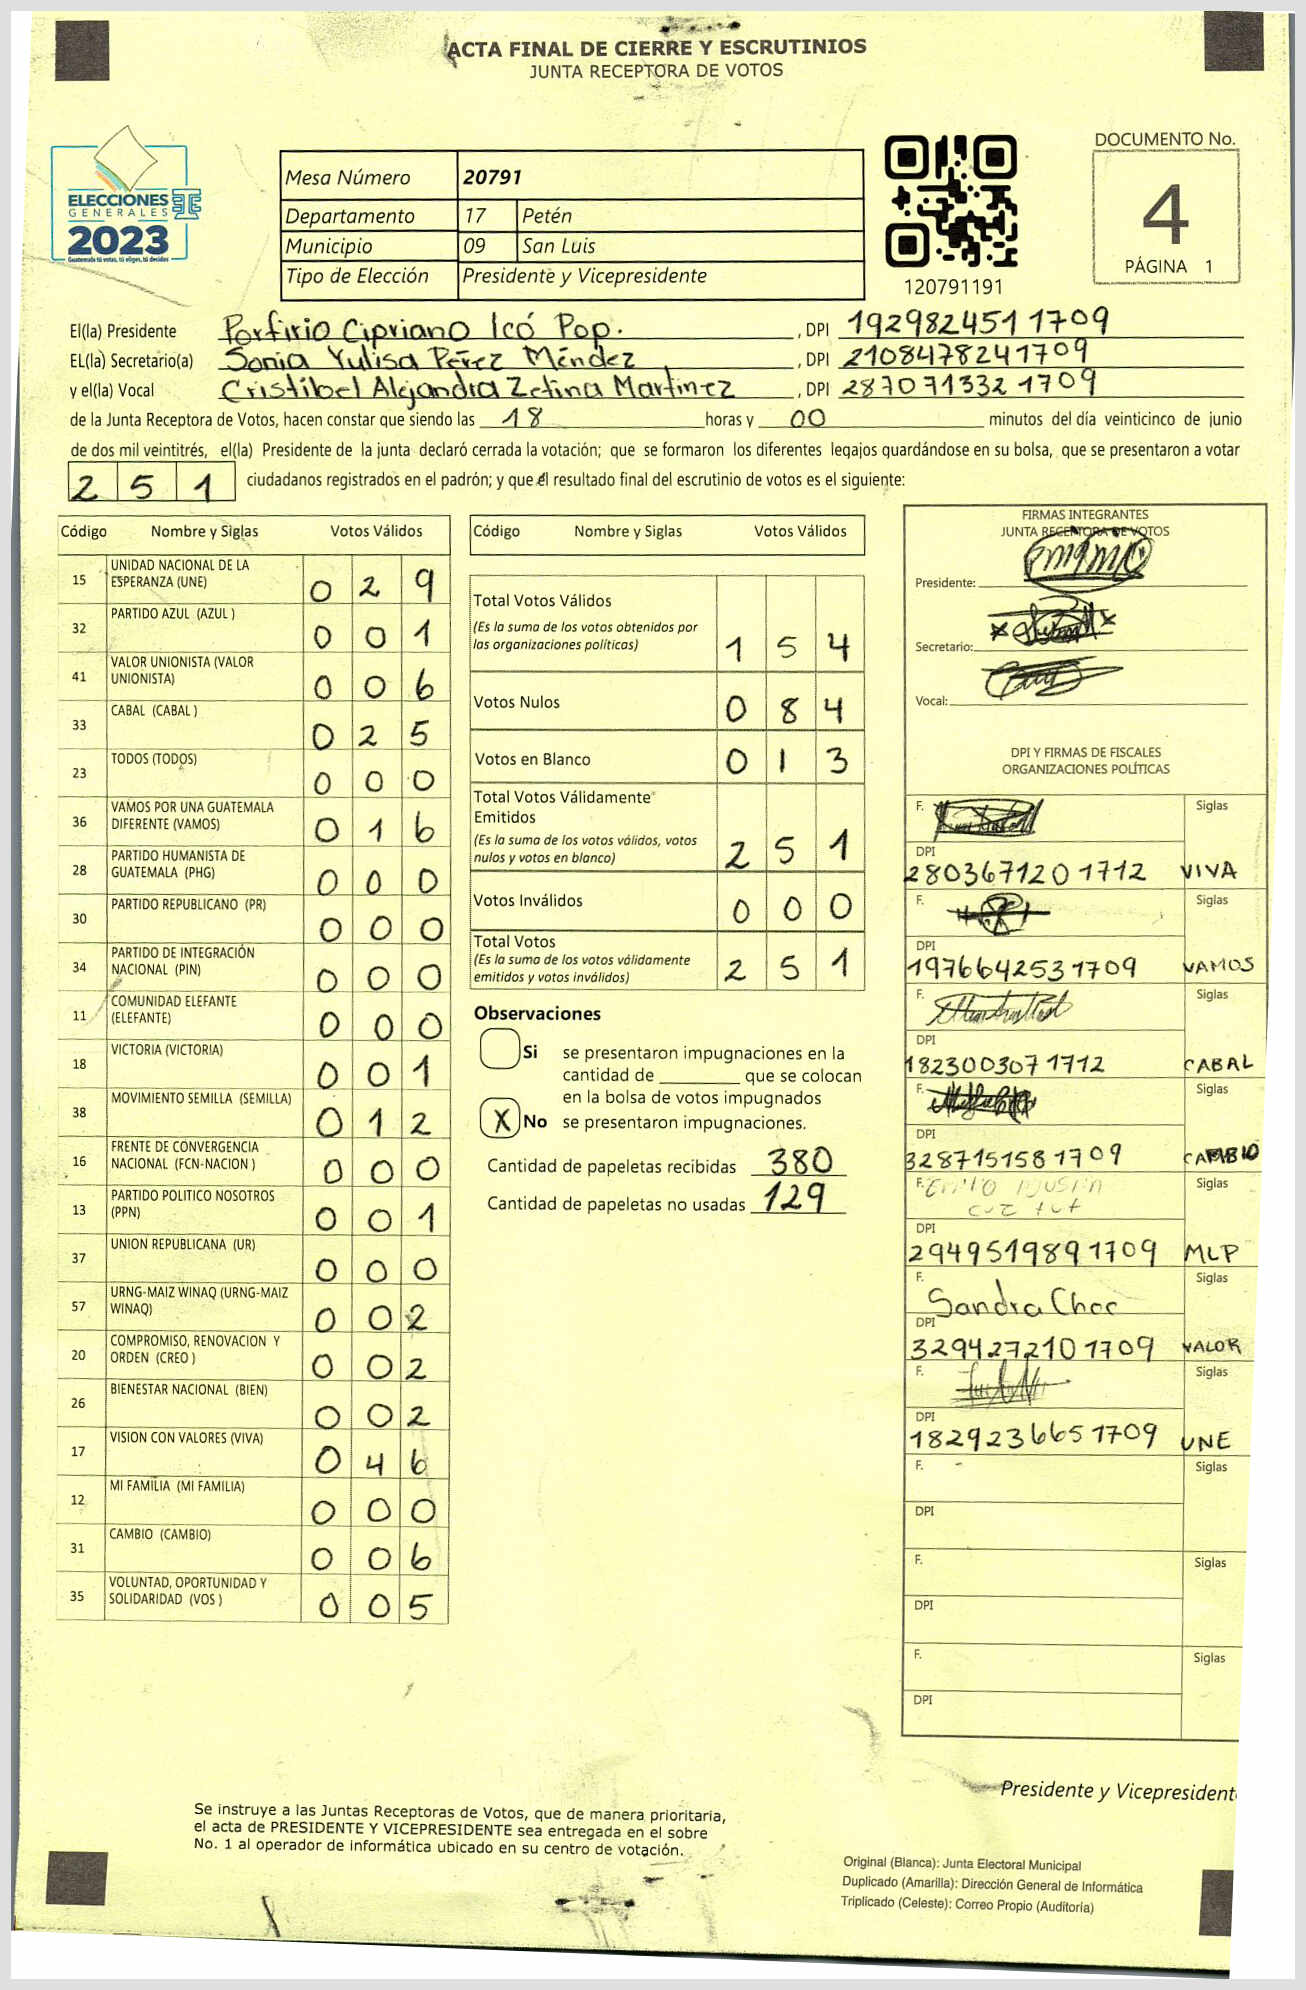 ACTA FINAL DE CIERRE Y ESCRUTINIOS
JUNTA RECEPTORA DE VOTOS
DOCUMENTO No.
4
PÁGINA 1
ELECCIONES
GENERALES
2023
Guatemala tú votas, tú eliges, tú decides
Mesa Número 20791
Departamento 17 Petén
Municipio 09 San Luis
Tipo de Elección Presidente y Vicepresidente
120791191
El(la) Presidente Porfirio Cipriano Icó Pop. , DPI 1929824511709
EL(la) Secretario(a) Sonia Yulisa Pérez Méndez , DPI 2108478241709
y el(la) Vocal Cristibel Alejandra Zetina Martinez , DPI 2870713321709
de la Junta Receptora de Votos, hacen constar que siendo las 18 horas y 00 minutos del día veinticinco de junio
de dos mil veintitrés, el(la) Presidente de la junta declaró cerrada la votación; que se formaron los diferentes legajos guardándose en su bolsa, que se presentaron a votar
251 ciudadanos registrados en el padrón; y que el resultado final del escrutinio de votos es el siguiente:
Código Nombre y Siglas Votos Válidos
15 UNIDAD NACIONAL DE LA ESPERANZA (UNE) 0 2 9
32 PARTIDO AZUL (AZUL ) 0 0 1
41 VALOR UNIONISTA (VALOR UNIONISTA) 0 0 6
33 CABAL (CABAL ) 0 2 5
23 TODOS (TODOS) 0 0 0
36 VAMOS POR UNA GUATEMALA DIFERENTE (VAMOS) 0 1 6
28 PARTIDO HUMANISTA DE GUATEMALA (PHG) 0 0 0
30 PARTIDO REPUBLICANO (PR) 0 0 0
34 PARTIDO DE INTEGRACIÓN NACIONAL (PIN) 0 0 0
11 COMUNIDAD ELEFANTE (ELEFANTE) 0 0 0
18 VICTORIA (VICTORIA) 0 0 1
38 MOVIMIENTO SEMILLA (SEMILLA) 0 1 2
16 FRENTE DE CONVERGENCIA NACIONAL (FCN-NACION ) 0 0 0
13 PARTIDO POLITICO NOSOTROS (PPN) 0 0 1
37 UNION REPUBLICANA (UR) 0 0 0
57 URNG-MAIZ WINAQ (URNG-MAIZ WINAQ) 0 0 2
20 COMPROMISO, RENOVACION Y ORDEN (CREO ) 0 0 2
26 BIENESTAR NACIONAL (BIEN) 0 0 2
17 VISION CON VALORES (VIVA) 0 4 6
12 MI FAMILIA (MI FAMILIA) 0 0 0
31 CAMBIO (CAMBIO) 0 0 6
35 VOLUNTAD, OPORTUNIDAD Y SOLIDARIDAD (VOS ) 0 0 5
Código Nombre y Siglas Votos Válidos
Total Votos Válidos
(Es la suma de los votos obtenidos por
las organizaciones políticas) 1 5 4
Votos Nulos 0 8 4
Votos en Blanco 0 1 3
Total Votos Válidamente
Emitidos
(Es la suma de los votos válidos, votos
nulos y votos en blanco) 2 5 1
Votos Inválidos 0 0 0
Total Votos
(Es la suma de los votos válidamente
emitidos y votos inválidos) 2 5 1
Observaciones
Si se presentaron impugnaciones en la
cantidad de ________ que se colocan
en la bolsa de votos impugnados
X No se presentaron impugnaciones.
Cantidad de papeletas recibidas 380
Cantidad de papeletas no usadas 129
FIRMAS INTEGRANTES
JUNTA RECEPTORA DE VOTOS
Presidente:
Secretario:
Vocal:
DPI Y FIRMAS DE FISCALES
ORGANIZACIONES POLÍTICAS
F. Siglas
DPI
2803671201712 VIVA
F. Siglas
DPI
1976642531709 VAMOS
F. Siglas
DPI
1823003071712 CABAL
F. Siglas
DPI
3287151581709 CAMBIO
F. Siglas
DPI
2949519891709 MLP
F. Siglas
Sandra Choc
DPI
3294272101709 VALOR
F. Siglas
DPI
1829236651709 UNE
F. Siglas
DPI
F. Siglas
DPI
F. Siglas
DPI
Presidente y Vicepresident
Se instruye a las Juntas Receptoras de Votos, que de manera prioritaria,
el acta de PRESIDENTE Y VICEPRESIDENTE sea entregada en el sobre
No. 1 al operador de informática ubicado en su centro de votación.
Original (Blanca): Junta Electoral Municipal
Duplicado (Amarilla): Dirección General de Informática
Triplicado (Celeste): Correo Propio (Auditoría)